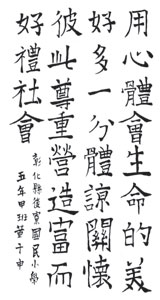 用心體會生命的美
好多一分體諒關懷
彼此尊重營造富而
好禮社會
彰化縣後寮國民小學
五年甲班董